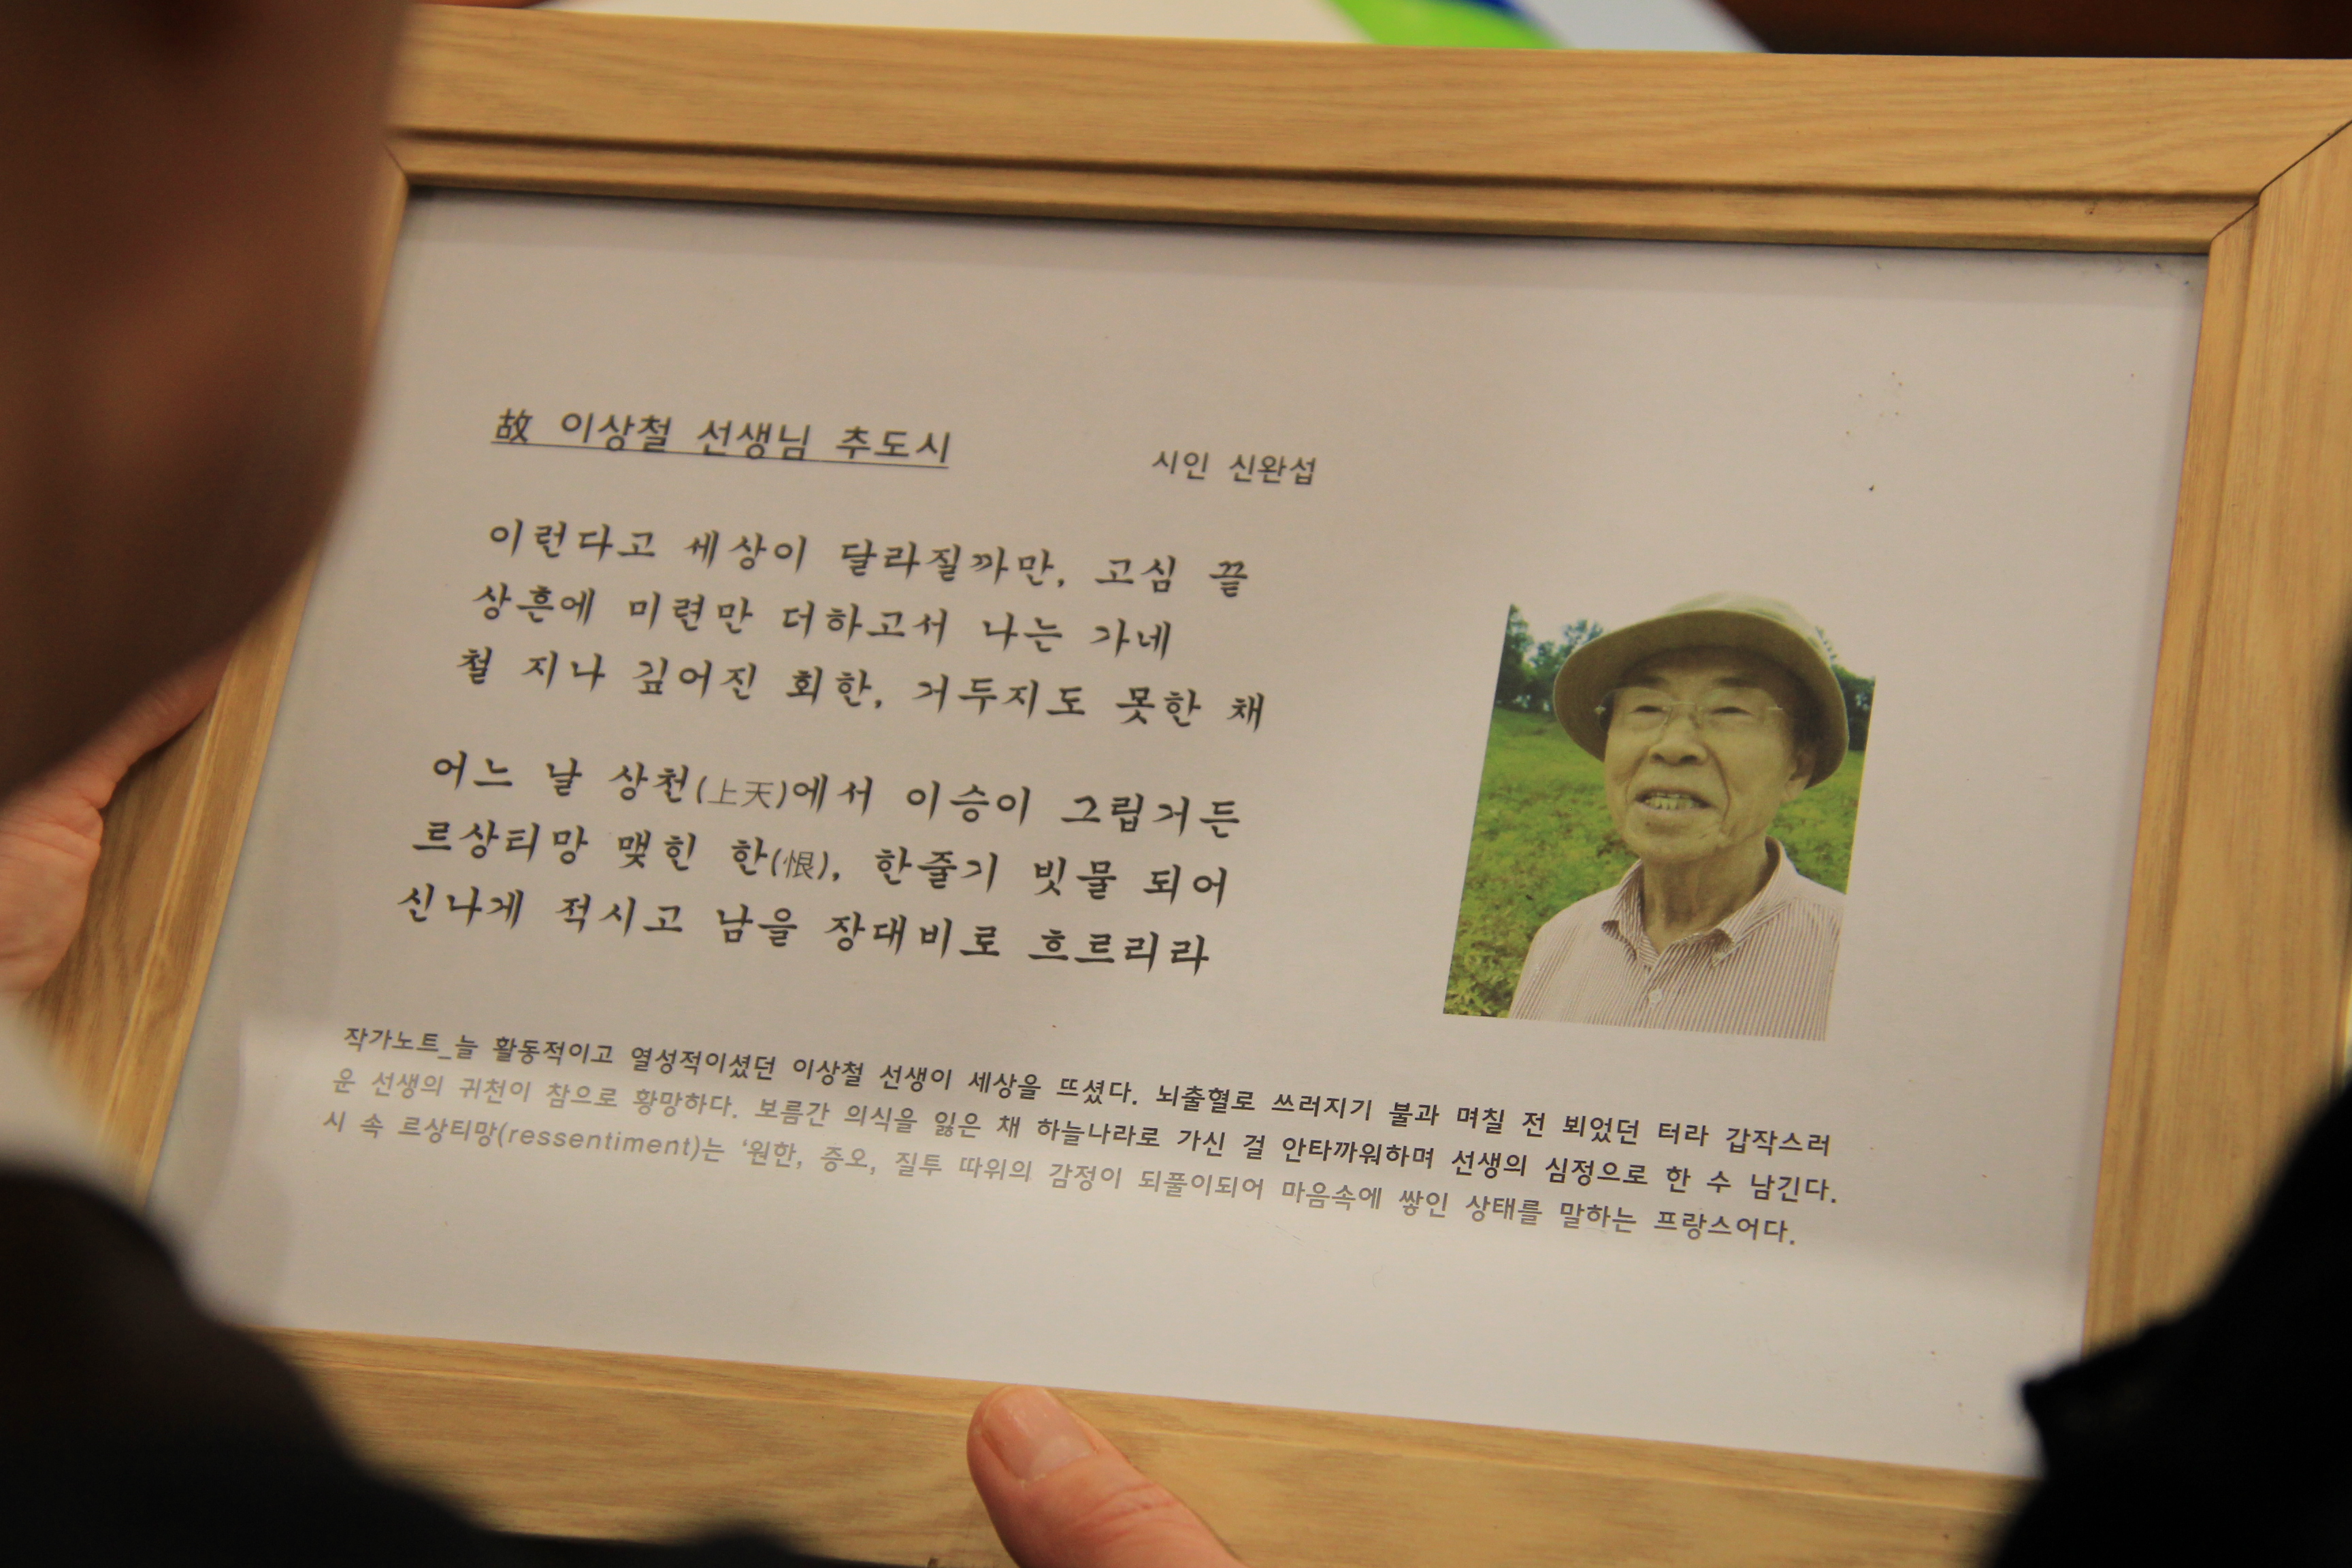 故 이상철 선생님 추도시
시인 신완섭
이런다고 세상이 달라질까만, 고심 끝
상흔에 미련만 더하고서 나는 가네
철 지나 깊어진 회한, 거두지도 못한 채
어느 날 상천(上天)에서 이승이 그립거든
르상티망 맺힌 한(恨), 한줄기 빗물 되어
신나게 적시고 남을 장대비로 흐르리라
작가노트_늘 활동적이고 열성적이셨던 이상철 선생이 세상을 뜨셨다. 뇌출혈로 쓰러지기 불과 며칠 전 뵈었던 터라 갑작스러
운 선생의 귀천이 참으로 황망하다. 보름간 의식을 잃은 채 하늘나라로 가신 걸 안타까워하며 선생의 심정으로 한 수 남긴다.
시 속 르상티망(ressentiment)는 ‘원한, 증오, 질투 따위의 감정이 되풀이되어 마음속에 쌓인 상태를 말하는 프랑스어다.